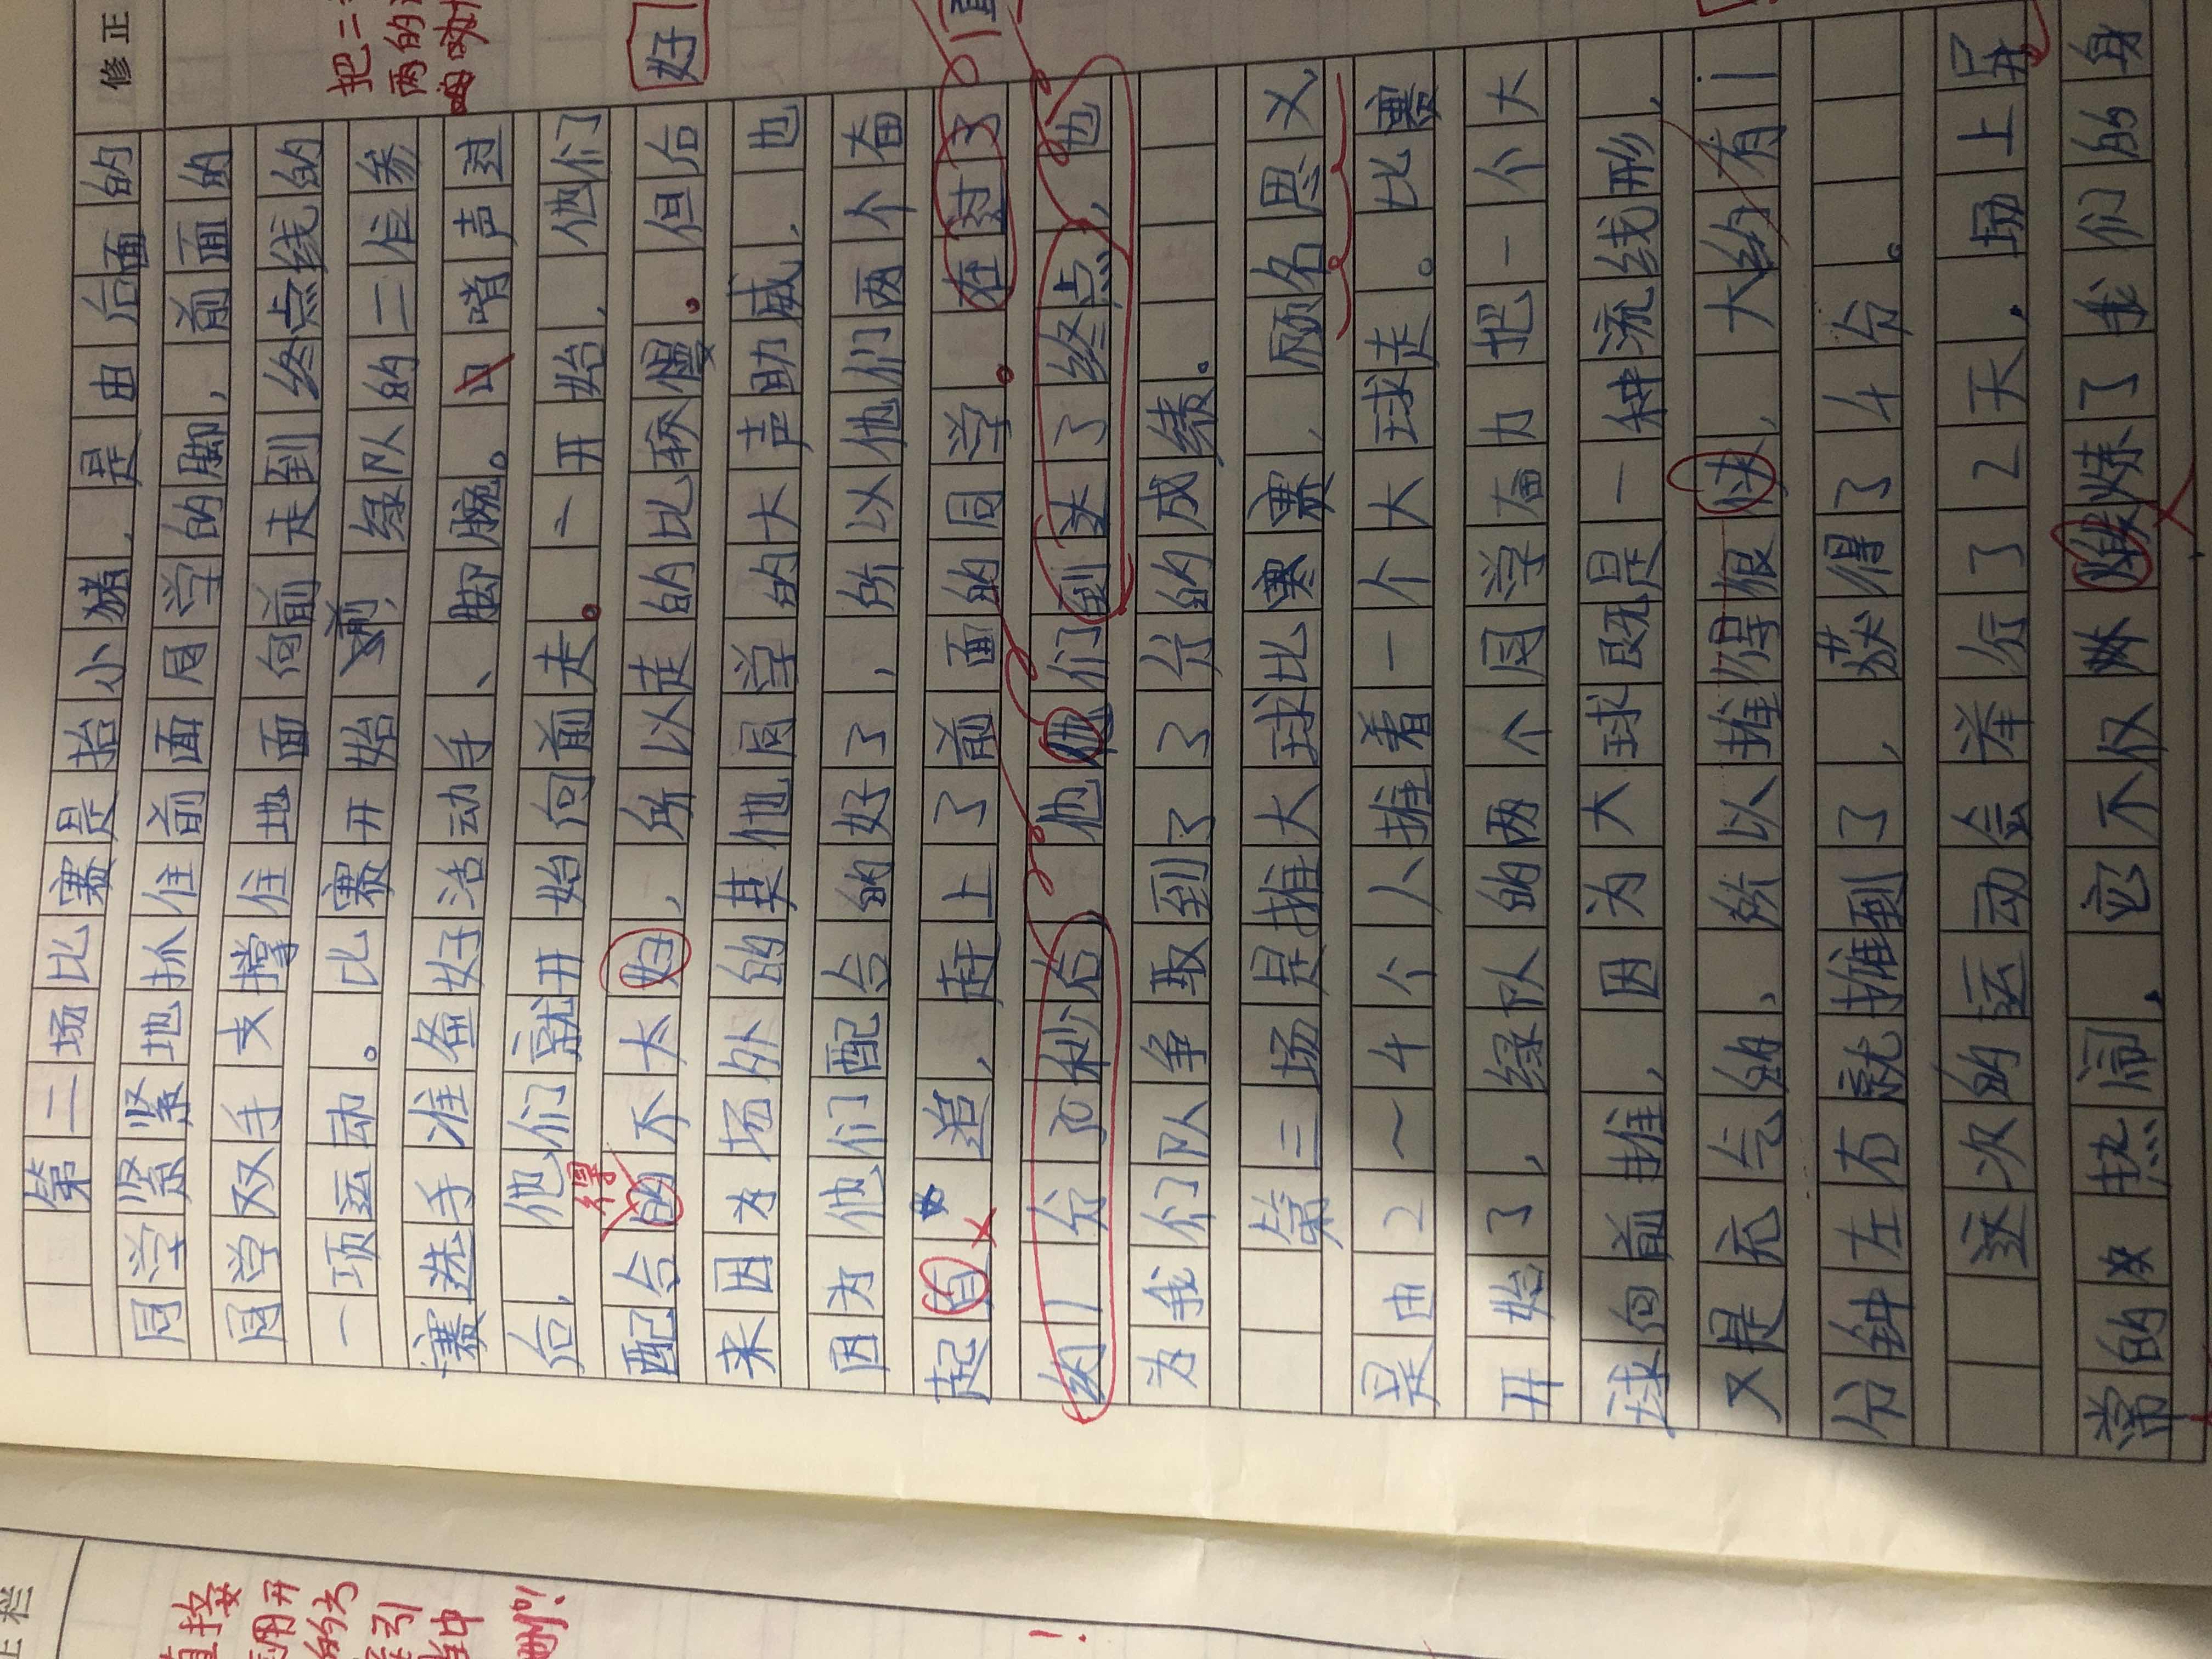 修正
把二
两的
好
第二场比赛是抬小猪，是由后面的
同学紧紧地抓住前面同学的脚，前面的
同学双手支撑住地面向前走到终点线的
一项运动。比赛开始前，绿队的二位参
赛选手准备好活动手、脚腕。口哨声过
后，他们就开始向前走。一开始，他们
得
配合的不太好，所以走的比较慢。但后
来因为场外的其他同学的大声助威，也
因为他们配合的好了，所以他们两个奋
起直追，赶上了前面的同学。在过了
约1分30秒后他他们到达了终点，他
为我们队争取到了了分的成绩。
第三场是推大球比赛，顾名思义，
是由2~4个人推着一个大球走。比赛
开始了，绿队的两个同学奋力把一个大
球向前推，因为大球既是一种流线形，
又是充气的，所以推得很快，大约有1
分钟左右就推到了，获得了4分。
这次的运动会举行了2天，场上异
常的热闹，它不仅锻炼了我们的身
直接
用开
引
中
!